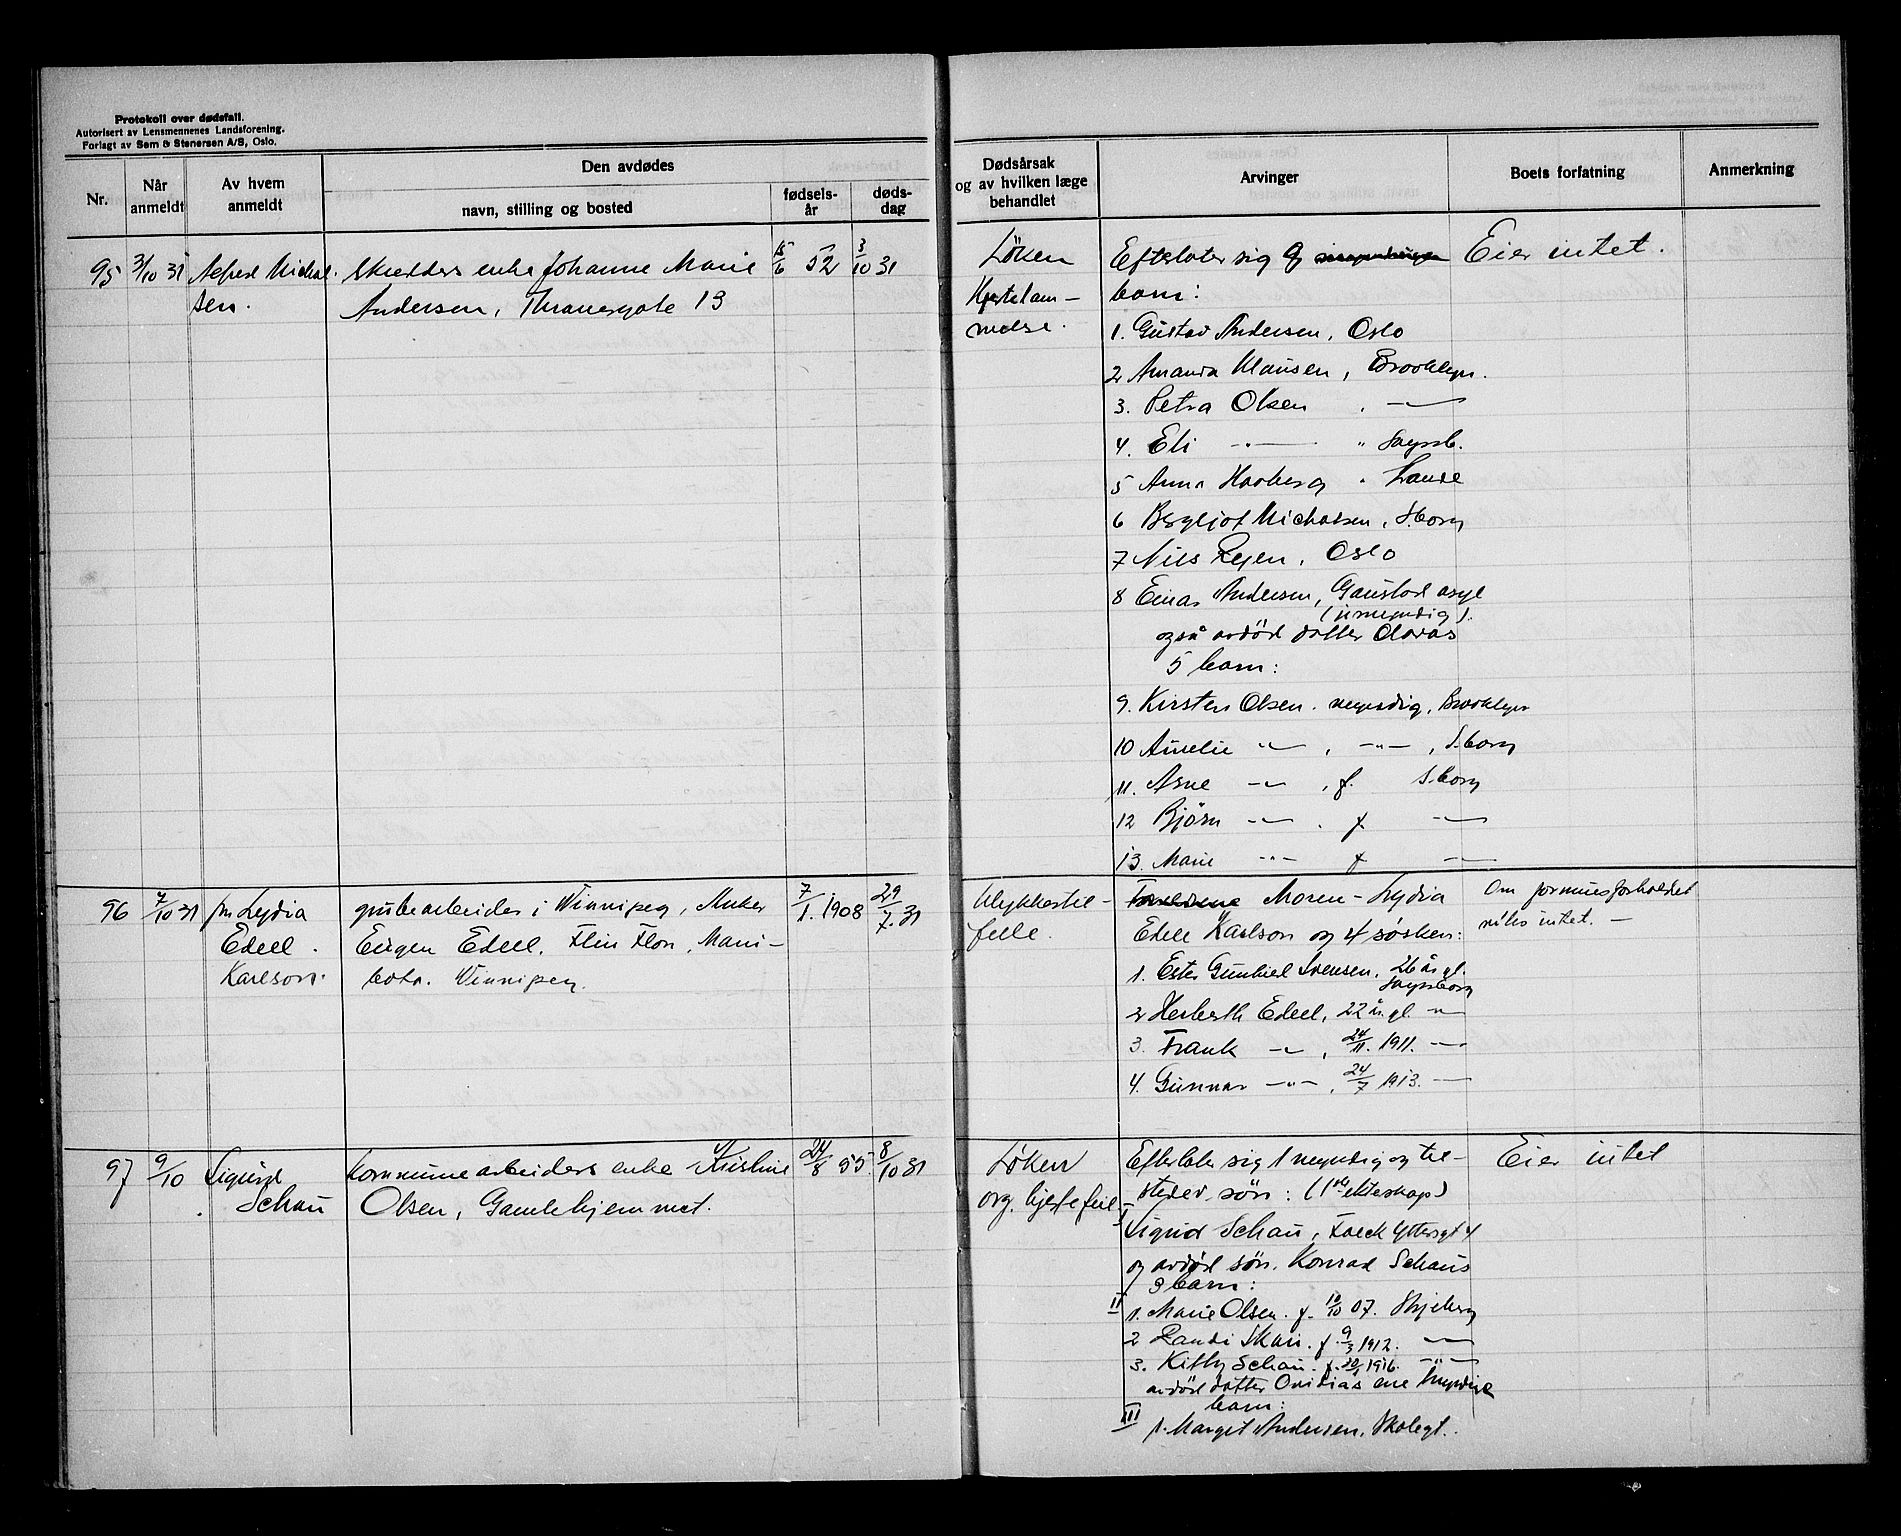 Protokoll over dødsfall.
Autorisert av Lensmennenes Landsforening.
Forlagt av Sem & Stenersen A/S, Oslo.
Nr.
Når anmeldt
Av hvem anmeldt
Den avdødes
navn, stilling og bosted
fødsels-år
døds-dag
Dødsårsak og av hvilken læge behandlet
Arvinger
Boets forfatning
Anmerkning
95 3/10 31 Alfred Michal- Skredders enke Johanne Marie 15/6 52 3/10 31
sen. Andersen, Thranesgate 13
Löken
melse.
Efterlater sig
barn:
1. Gustav Andersen, Oslo
2 Amanda Klausen, Brooklyn.
3. Petra Olsen , —
4. Eli —"— " Sarpsb.
5 Anna Hoberg " Lande
6 Bergljot Michalsen, S.borg
7 Nils , Oslo
8 Einar Andersen, Gaustad asyl
(umyndig).
også avdöd datter Olavas
5 barn:
9. Kirsten Olsen. myndig, Brooklyn
10 Amelie —"— , —"— , S.borg
11. Arne —"— , f. S.borg
12 Björn —"— . f. —"—
13. Marie —"— f —"—
Eier intet.
96 7/10 31 fru Lydia grubearbeider i Winnipeg, Anker 7/1. 1908 29/7. 31
Edell Eugen Edell. Flin Flon, Mani-
Karlson. toba. Winnipeg.
Ulykkestil-
felle.
Moren - Lydia
Edell Karlson og 4 søsken:
1. Ester Gunhild Svensen, 26 år gl.
Sarpsborg
2 Herberth Edell, 22 år gl —"—
3. Frank —"— , 24/11. 1911. —"—
4. Gunnar —"— , 24/7 1913. —"—
Om formuesforholdet
vites intet. —
97 9/10 Sigurd Kommunearbeiders enke Kristine 24/8 55. 8/10 31
Schau Olsen, Gamlehjemmet.
Löken
org. hjertefeil
Efterlater sig 1 myndig og til-
stedev. sön: (1ste ekteskap)
I
Sigurd Schau, Falck Yttersgt 4
og avdöd sön. Konrad Schaus
3 barn:
II
1. Marie Olsen. f. 10/10 07. Skjeberg
2 Randi Skau. f. 9/3 1912. —"—
3. Kitty Schau. f. 1916. —"—
avdöd datter Ovidias ene myndige
barn:
III
1. Margit Andersen, Skolegt.
Eier intet